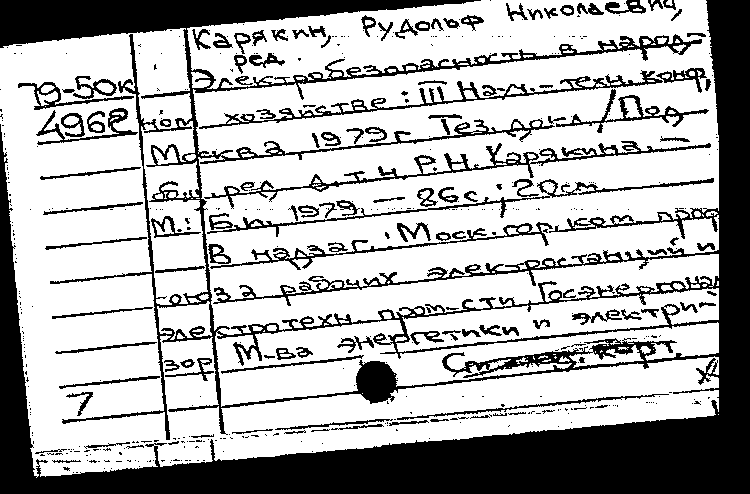 Карякин, Рудольф Николаевич,
ред.
79-50к Электробезопасность в народ-
4968 ном хозяйстве: III Науч.-техн. конф,
Москва, 1979 г. Тез. докл / Под
общ. ред. д.т.н. Р.Н. Карякина. —
М.: Б.и, 1979. — 86 с.; 20 см.
В надзаг.: Моск. гор. ком. проф
союза рабочих электростанций и
электротехн. пром-сти, Госэнергонад
зор М-ва энергетики и электри-
7